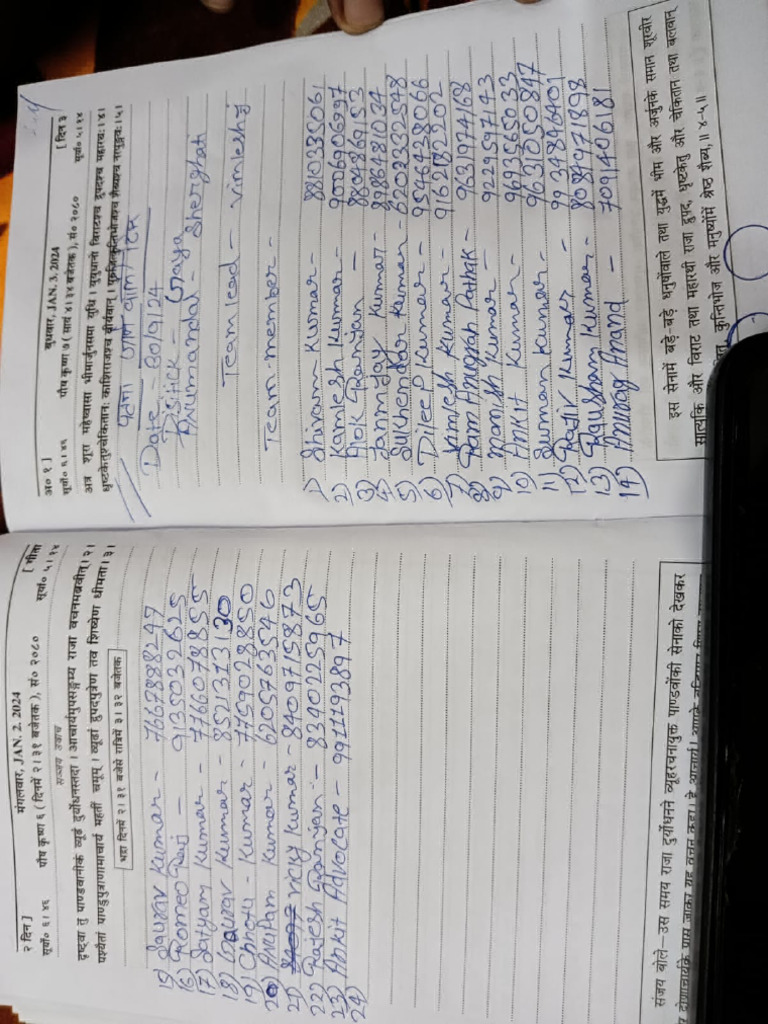 २ दिन ]
मंगलवार, JAN. 2. 2024
[ गीता
सूर्या० ६। ४६
पौष कृष्णा ६ ( दिनमें २। ३१ बजेतक ), सं० २०८०
सूर्या० ५। १४
सञ्जय उवाच
दृष्ट्वा तु पाण्डवानीकं व्यूढं दुर्योधनस्तदा। आचार्यमुपसङ्गम्य राजा वचनमब्रवीत्। २।
पश्यैतां पाण्डुपुत्राणामाचार्य महतीं चमूम्। व्यूढां द्रुपदपुत्रेण तव शिष्येण धीमता। ३।
भद्रा दिनमें २। ३१ बजेसे रात्रिमें ३। ३२ बजेतक
15) Saurav Kumar - 7667888247
16) Romeo Raj - 9135032625
17) Satyam Kumar - 7766078855
18) Gaurav Kumar - 8521373130
19) Chhotu - Kumar - 7759028850
20) Anupam Kumar - 6205763546
21) Vicky Kumar - 8409715873
22) Ratesh Ranjan - 8340225965
23) Ankit Advocate - 9911493897
24)
संजय बोले—उस समय राजा दुर्योधनने व्यूहरचनायुक्त पाण्डवोंकी सेनाको देखकर
द्रोणाचार्यके पास जाकर यह वचन कहा। हे आचार्य!
अ० १ ]
बुधवार, JAN. 3. 2024
[ दिन ३
सूर्या० ६। ४६
पौष कृष्णा ७ ( सायं ४। ३४ बजेतक ), सं० २०८०
सूर्या० ५। १४
अत्र शूरा महेष्वासा भीमार्जुनसमा युधि। युयुधानो विराटश्च द्रुपदश्च महारथः। ४।
धृष्टकेतुश्चेकितानः काशिराजश्च वीर्यवान्। पुरुजित्कुन्तिभोजश्च शैब्यश्च नरपुङ्गवः। ५।
Date - 30/9/24
Distick - Gaya
Anumandal - Sherghati
Team lead - Vimlesh ji
Team member -
1) Shivam Kumar - 8810335061
2) Kamlesh Kumar - 9006906997
3) Alok Ranjan - 8804826953
4) Janmjay Kumar - 8986481034
5) Sukhendar Kumar - 6202332548
6) Dileep Kumar - 9546428066
7) Vimlesh Kumar - 9162182202
8) Ram Anugrah Pathak - 9631974168
9) Manish Kumar - 9229597743
10) Ankit Kumar - 9693565033
11) Suman Kumar - 9631050847
12) Rajiv Kumar - 9934896401
13) Raushan Kumar - 8084971898
14) Anurag Anand - 7091406181
इस सेनामें बड़े-बड़े धनुषोंवाले तथा युद्धमें भीम और अर्जुनके समान शूरवीर
सात्यकि और विराट तथा महारथी राजा द्रुपद, धृष्टकेतु और चेकितान तथा बलवान्
कुन्तिभोज और मनुष्योंमें श्रेष्ठ शैब्य,॥ ४-५॥